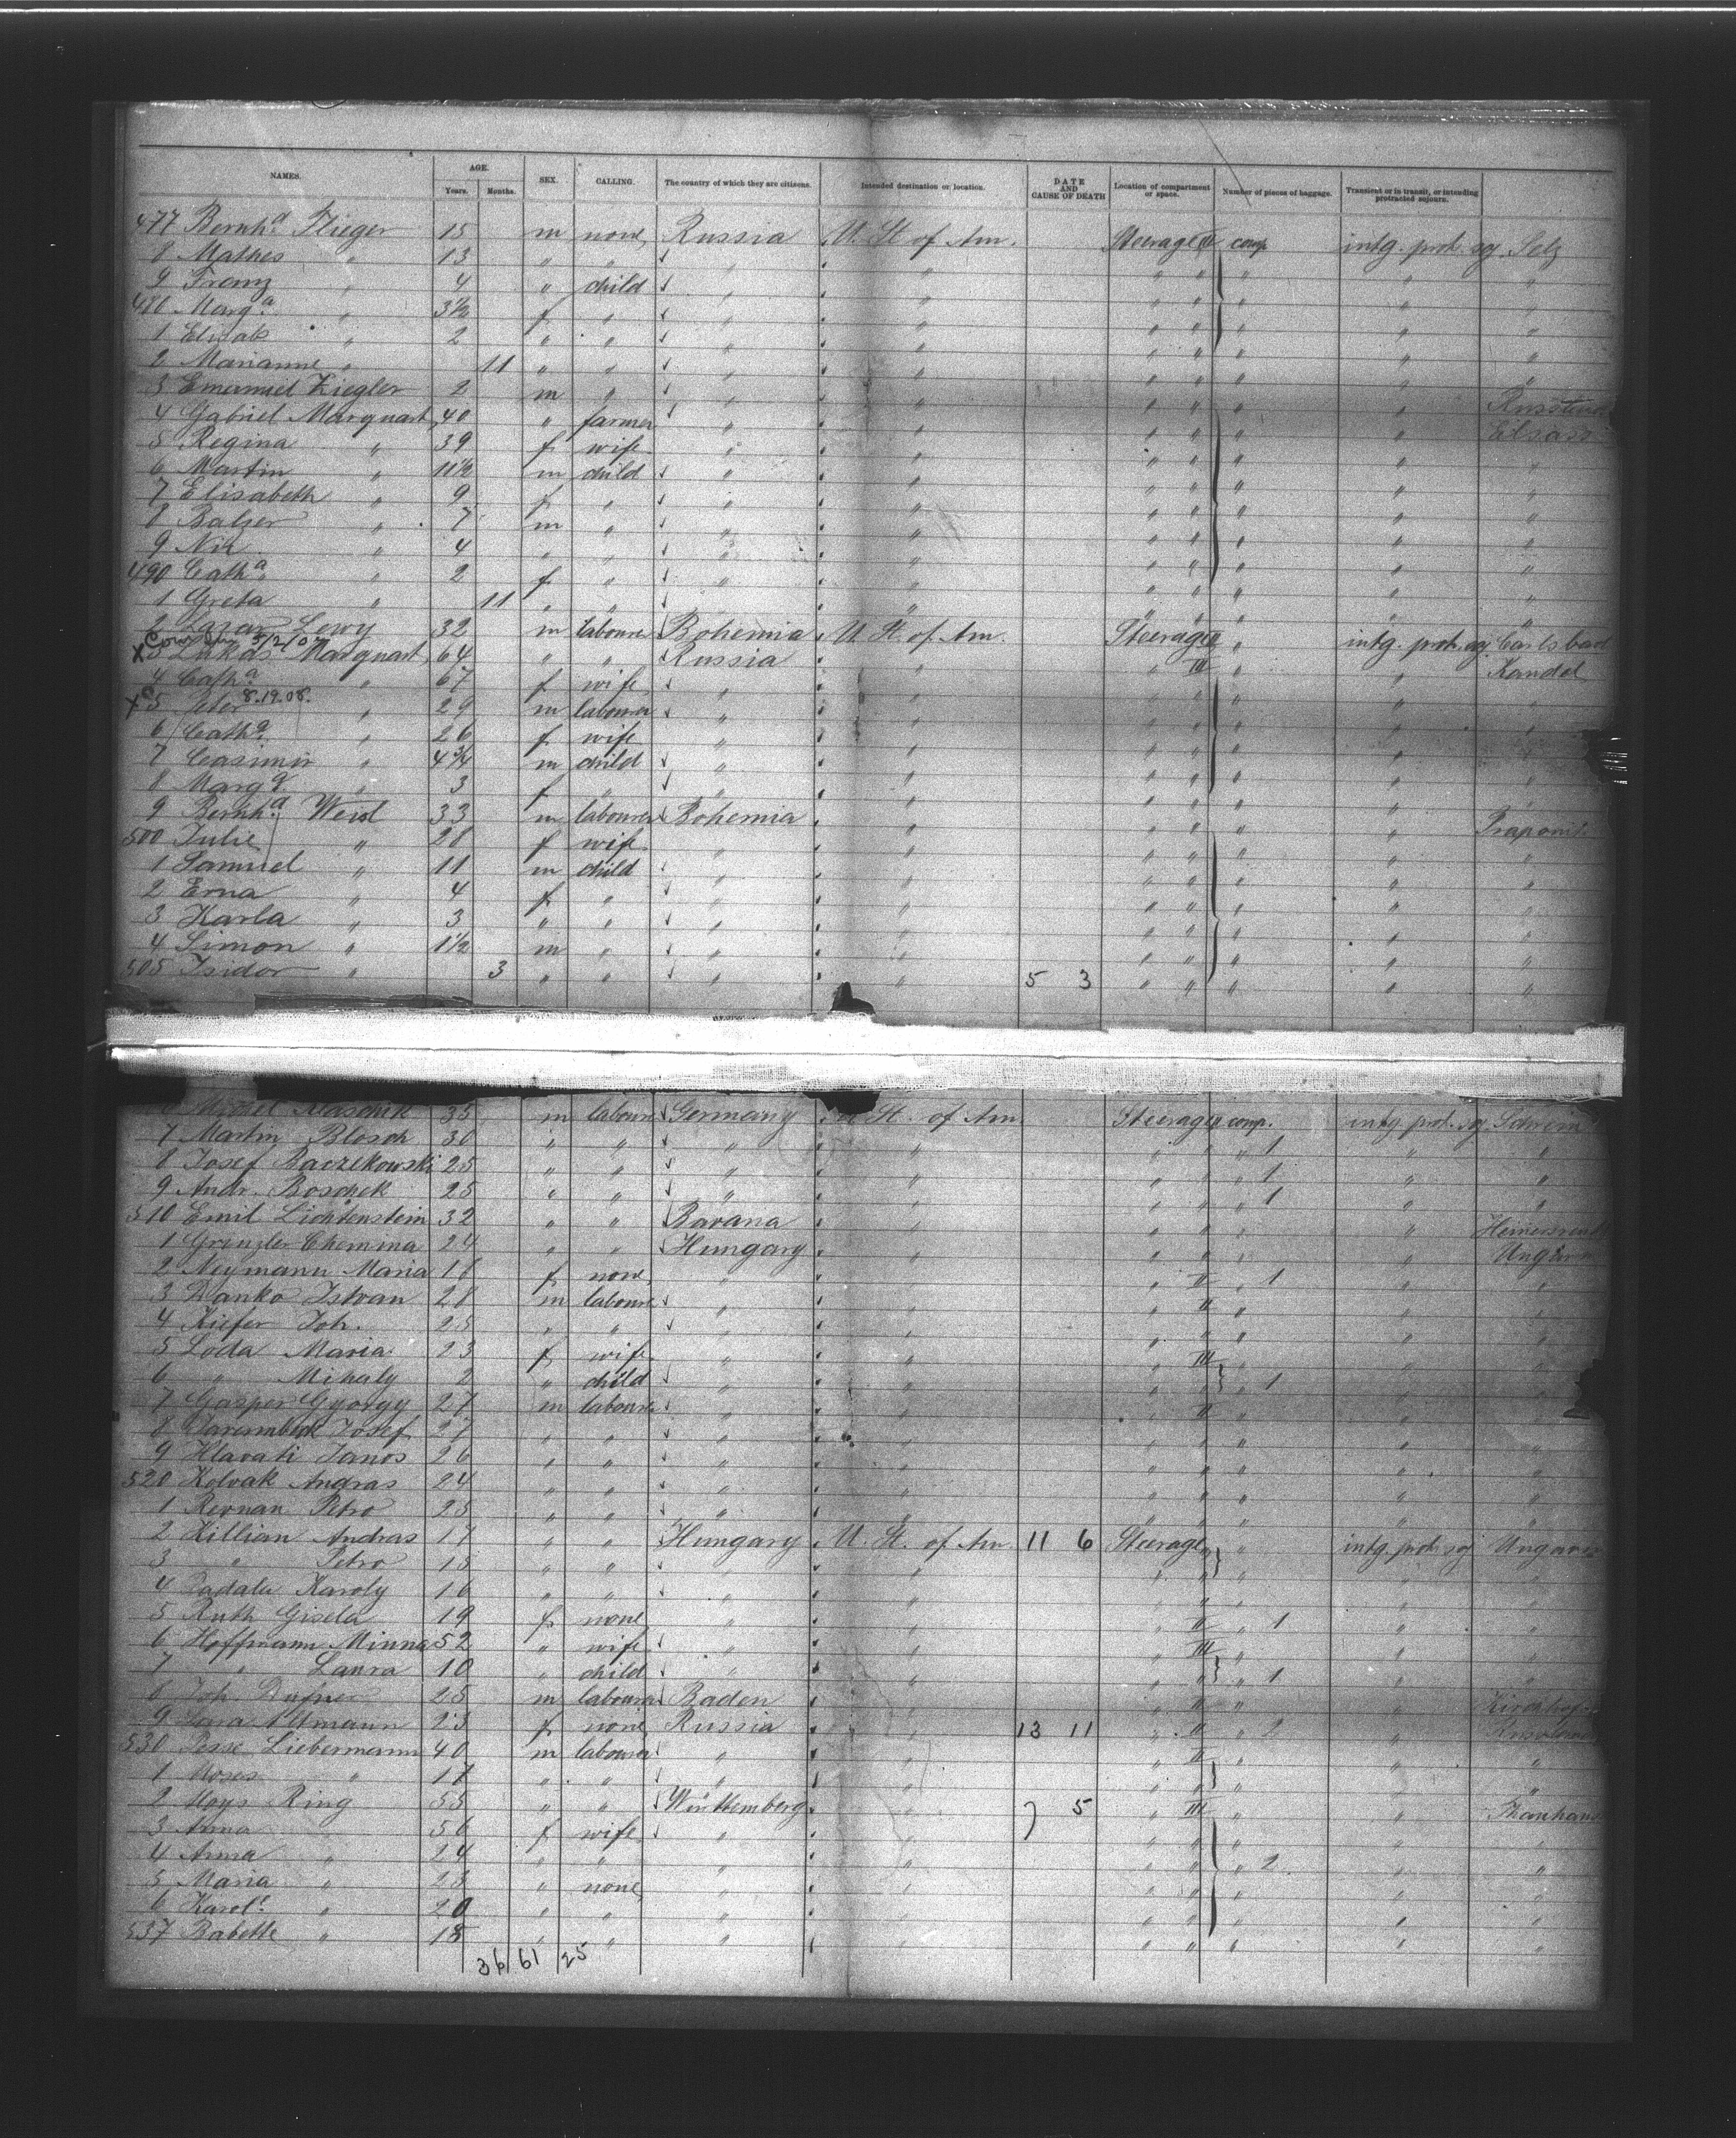 NAMES. AGE. Years. Months. SEX. CALLING. The country of which they are citizens. Intended destination or location. DATE AND CAUSE OF DEATH Location of compartment or space. Number of pieces of baggage. Transient or in transit, or intending protracted sojourn.
477 Bernh.d Flieger 15 m none Russia U. St. of Am. Steerage II comp intg. prot. soj. Selz
8 Mathes " 13 " " " " " " " " "
9 Franz " 4 " child " " " " " " "
480 Marg.a " 3½ f " " " " " " " "
1 Elisab " 2 " " " " " " " " "
2 Marianne " 11 " " " " " " " " "
3 Emanuel Ziegler 2 m " " " " " " "
4 Gabriel Marquart 40 " farmer " " " " " " Elsass
5 Regina " 39 f wife " " " " " " "
6 Martin " 11½ m child " " " " " " "
7 Elisabeth " 9 f " " " " " " " "
8 Balzer " 7 m " " " " " " " "
9 Nik " 4 " " " " " " " " "
490 Cath.a " 2 f " " " " " " " "
1 Greta " 11 " " " " " " " " "
2 Lazar Lewy 32 m labourer Bohemia U. St. of Am. Steerage II " intg. prot. soj. Carlsbad
X 3 Lukas Marquart 64 " " Russia " " III " " Kandel
4 Cath.a " 67 f wife " " " " " " "
X 5 Peter 8.19.08. " 29 m labourer " " " " " " "
6 Cath.a " 26 f wife " " " " " " "
7 Casimir " 4¾ m child " " " " " " "
8 Marg.a " 3 f " " " " " " " "
9 Bernh.d Weisl 33 m labourer Bohemia " " " " "
500 Julie " 28 f wife " " " " " " "
1 Samuel " 11 m child " " " " " " "
2 Erna " 4 f " " " " " " " "
3 Karla " 3 " " " " " " " " "
4 Simon " 1½ m " " " " " " " "
505 Isidor " 3 " " " " 5 3 " " " " "
Michel 35 m labourer Germany U. St. of Am Steerage II comp. intg. prot. soj. Schrim
7 Martin Blosch 30 " " " " " " 1 " "
8 Josef Baczekowski 25 " " " " " " 1 " "
9 Andr. Boschek 25 " " " " " " 1 " "
510 Emil Lichtenstein 32 " " Bavaria " " " " "
1 Grenzler Chemma 24 " " Hungary " " " " " Ungarn
2 Neymann Maria 18 f none " " " II " 1 " "
3 Danko Istvan 28 m labourer " " " II " " "
4 Kiefer Joh. 25 " " " " " " " " "
5 Loda Maria 23 f wife " " " III " " "
6 " Mihaly 2 " child " " " " " 1 " "
7 Gasper Gyorgy 27 m labourer " " " II " " "
8 Josef 27 " " " " " " " " "
9 Hlavati Janos 26 " " " " " " " " "
520 Kolvak Andras 24 " " " " " " " " "
1 Rernan Petro 25 " " " " " " " " "
2 Killian Andras 17 " " Hungary U. St. of Am 11 6 Steerage " " intg. prot. soj Ungarn
3 " Petro 15 " " " " " " " " "
4 Karoly 16 " " " " " " " " "
5 Ruth Gisela 19 f none " " " II " 1 " "
6 Hoffmann Minna 52 " wife " " " III " " "
7 " Laura 10 " child " " " " " 1 " "
8 Joh. Dufner 25 m labourer Baden " " II " "
9 23 f none Russia " 13 11 " II " 2 "
530 Liebermann 40 m labourer " " " II " " "
1 Moses " 17 " " " " " " " " "
2 Ring 55 " " Württemberg " 7 5 " III " "
3 Anna 56 f wife " " " " " " "
4 Anna " 24 " " " " " " " 2 " "
5 Maria " 23 " none " " " " " " "
6 Karol.e " 20 " " " " " " " " "
537 Babette " 18 " " " " " " " " "
36/61/25